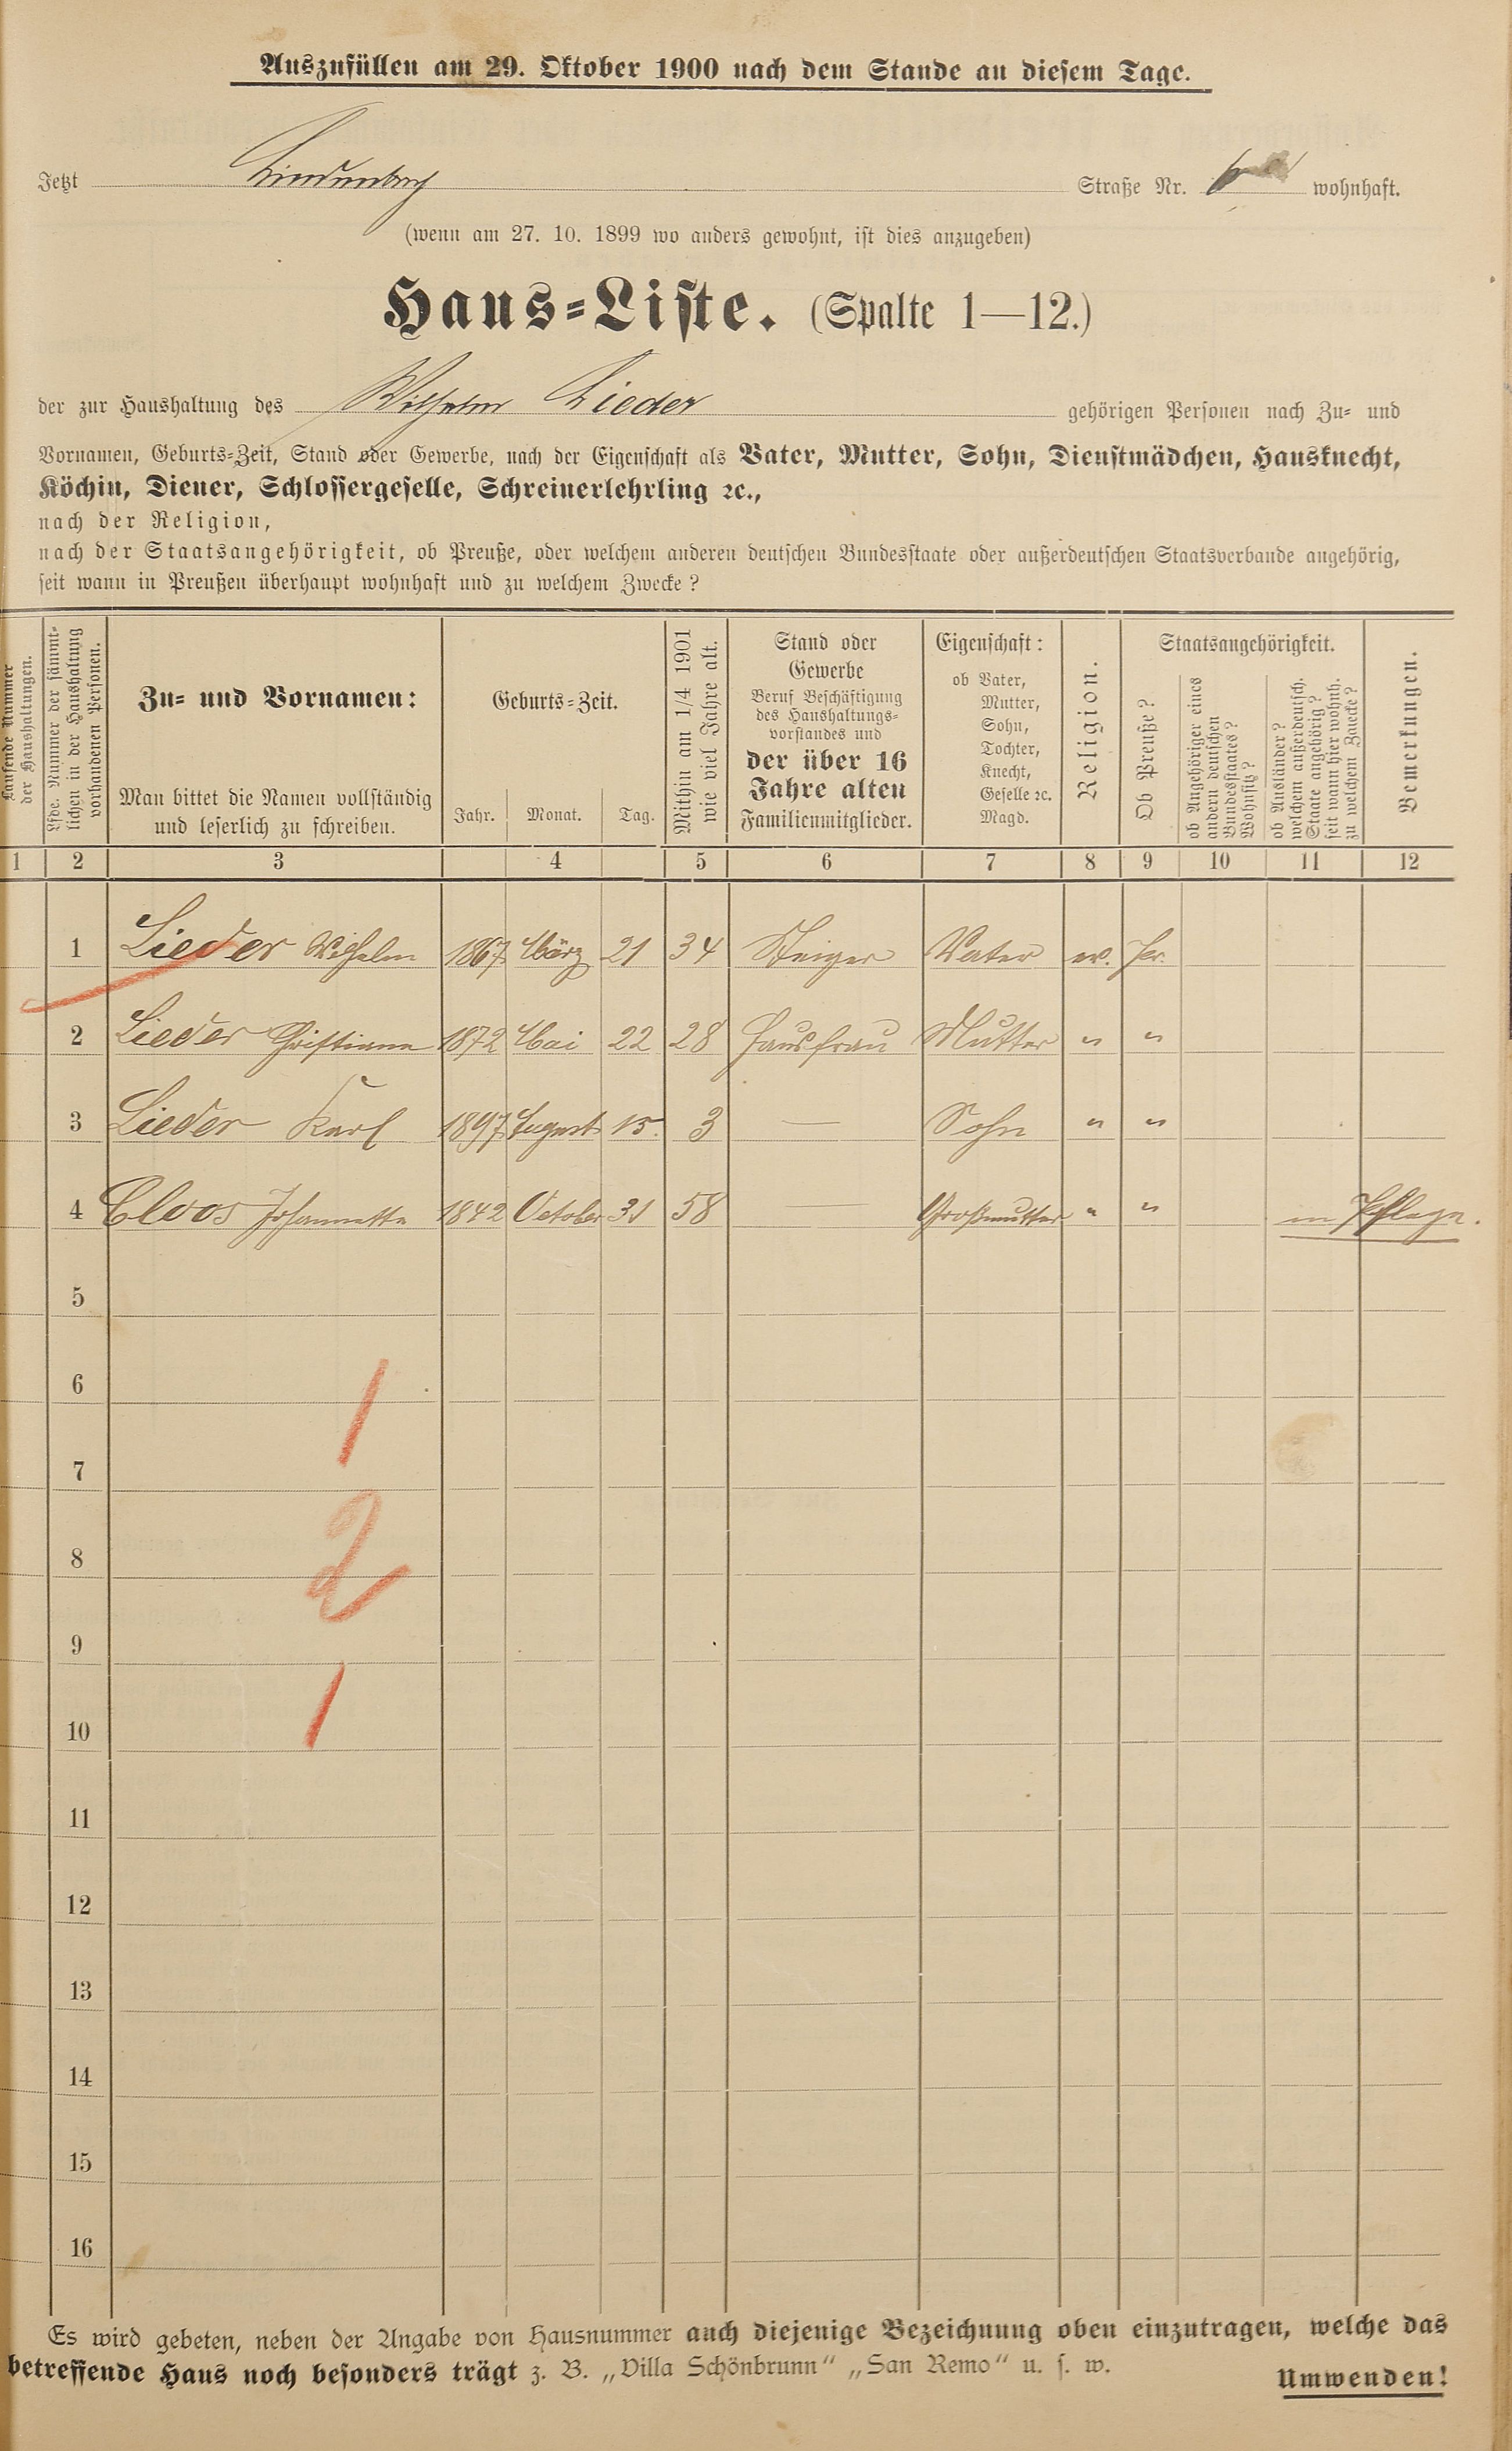 Auszufüllen am 29. Oktober 1900 nach dem Stande an diesem Tage.
Jetzt Lindenbach Straße Nr. 6 wohnhaft.
(wenn am 27. 10. 1899 wo anders gewohnt, ist dies anzugeben)
Haus-Liste. (Spalte 1—12.)
der zur Haushaltung des Wilhelm Lieder gehörigen Personen nach Zu- und
Vornamen, Geburts-Zeit, Stand oder Gewerbe, nach der Eigenschaft als Vater, Mutter, Sohn, Dienstmädchen, Hausknecht,
Köchin, Diener, Schlossergeselle, Schreinerlehrling ꝛc.,
nach der Religion,
nach der Staatsangehörigkeit, ob Preuße, oder welchem anderen deutschen Bundesstaate oder außerdeutschen Staatsverbande angehörig,
seit wann in Preußen überhaupt wohnhaft und zu welchem Zwecke?
Laufende Nummer
der Haushaltungen.
Lfde. Nummer der sämmt-
lichen in der Haushaltung
vorhandenen Personen.
Zu- und Vornamen:
Man bittet die Namen vollständig
und leserlich zu schreiben.
Geburts-Zeit.
Jahr. Monat. Tag.
Mithin am 1/4 1901
wie viel Jahre alt.
Stand oder
Gewerbe
Beruf Beschäftigung
des Haushaltungs-
vorstandes und
der über 16
Jahre alten
Familienmitglieder.
Eigenschaft:
ob Vater,
Mutter,
Sohn,
Tochter,
Knecht,
Geselle ꝛc.
Magd.
Religion.
Staatsangehörigkeit.
Ob Preuße?
ob Angehöriger eines
andern deutschen
Bundesstaates?
Wohnsitz?
ob Ausländer?
welchem außerdeutsch.
Staate angehörig?
seit wann hier wohnh.
zu welchem Zwecke?
Bemerkungen.
1 2 3 4 5 6 7 8 9 10 11 12
1 Lieder Wilhelm 1867 März 21 34 Steiger Vater ev. Pr.
2 Lieder Christiane 1872 Mai 22 28 Hausfrau Mutter " "
3 Lieder Karl 1897 August 15. 3 — Sohn " "
4 Cloos Johannette 1842 October 31 58 — Großmutter " " in Pflege.
5
6
7
8
9
10
11
12
13
14
15
16
1
2
1
Es wird gebeten, neben der Angabe von Hausnummer auch diejenige Bezeichnung oben einzutragen, welche das
betreffende Haus noch besonders trägt z. B. „Villa Schönbrunn“ „San Remo“ u. s. w.
Umwenden!